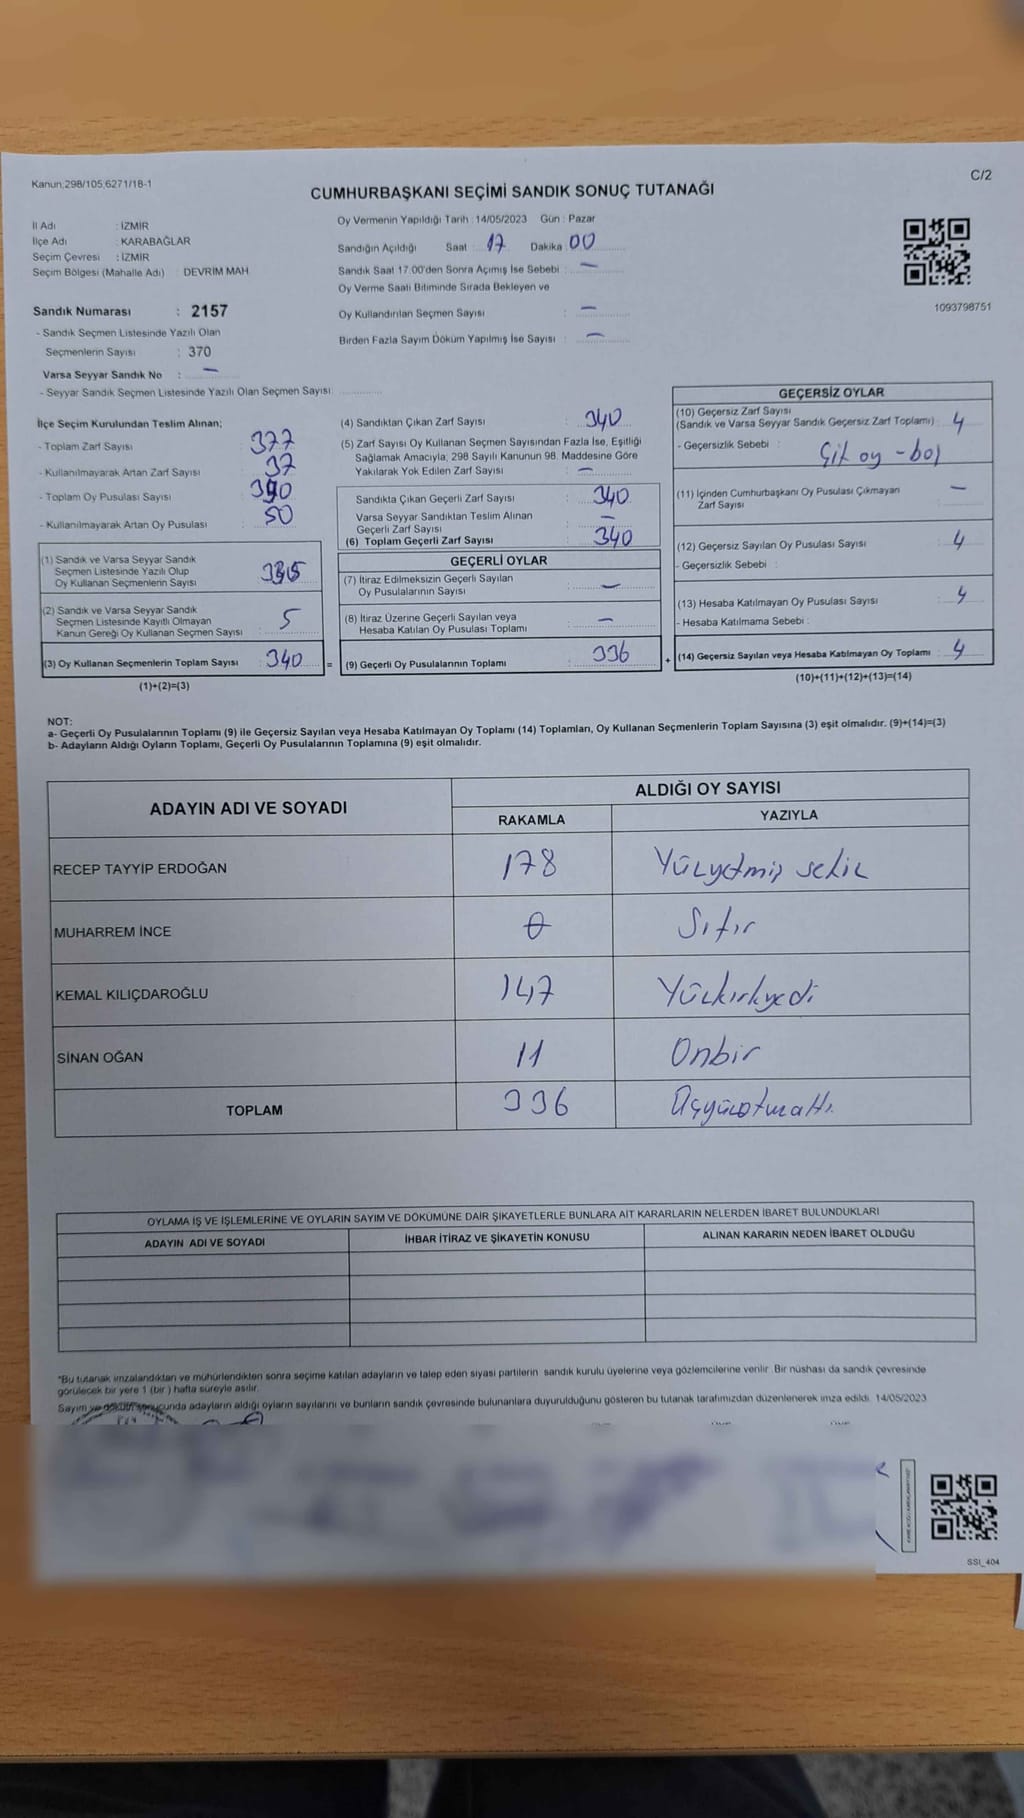 Kanun:298/105;6271/18-1
C/2
CUMHURBAŞKANI SEÇİMİ SANDIK SONUÇ TUTANAĞI
İl Adı : İZMİR
İlçe Adı : KARABAĞLAR
Seçim Çevresi : İZMİR
Seçim Bölgesi (Mahalle Adı) : DEVRİM MAH.
Oy Vermenin Yapıldığı Tarih : 14/05/2023 Gün : Pazar
Sandığın Açıldığı Saat : 17 Dakika : 00
Sandık Saat 17.00'den Sonra Açılmış İse Sebebi : -
Oy Verme Saati Bitiminde Sırada Bekleyen ve
Oy Kullandırılan Seçmen Sayısı : -
Birden Fazla Sayım Döküm Yapılmış İse Sayısı : -
1093798751
Sandık Numarası : 2157
- Sandık Seçmen Listesinde Yazılı Olan
Seçmenlerin Sayısı : 370
Varsa Seyyar Sandık No : -
- Seyyar Sandık Seçmen Listesinde Yazılı Olan Seçmen Sayısı:
İlçe Seçim Kurulundan Teslim Alınan;
- Toplam Zarf Sayısı : 377
- Kullanılmayarak Artan Zarf Sayısı : 37
- Toplam Oy Pusulası Sayısı : 390
- Kullanılmayarak Artan Oy Pusulası : 50
(1) Sandık ve Varsa Seyyar Sandık
Seçmen Listesinde Yazılı Olup
Oy Kullanan Seçmenlerin Sayısı : 335
(2) Sandık ve Varsa Seyyar Sandık
Seçmen Listesinde Kayıtlı Olmayan
Kanun Gereği Oy Kullanan Seçmen Sayısı : 5
(3) Oy Kullanan Seçmenlerin Toplam Sayısı : 340
(1)+(2)=(3)
(4) Sandıktan Çıkan Zarf Sayısı : 340
(5) Zarf Sayısı Oy Kullanan Seçmen Sayısından Fazla İse, Eşitliği
Sağlamak Amacıyla; 298 Sayılı Kanunun 98. Maddesine Göre
Yakılarak Yok Edilen Zarf Sayısı : -
Sandıkta Çıkan Geçerli Zarf Sayısı : 340
Varsa Seyyar Sandıktan Teslim Alınan
Geçerli Zarf Sayısı : -
(6) Toplam Geçerli Zarf Sayısı : 340
GEÇERLİ OYLAR
(7) İtiraz Edilmeksizin Geçerli Sayılan
Oy Pusulalarının Sayısı : -
(8) İtiraz Üzerine Geçerli Sayılan veya
Hesaba Katılan Oy Pusulası Toplamı : -
= (9) Geçerli Oy Pusulalarının Toplamı : 336
GEÇERSİZ OYLAR
(10) Geçersiz Zarf Sayısı
(Sandık ve Varsa Seyyar Sandık Geçersiz Zarf Toplamı) : 4
- Geçersizlik Sebebi : Çift oy - boş
(11) İçinden Cumhurbaşkanı Oy Pusulası Çıkmayan
Zarf Sayısı : -
(12) Geçersiz Sayılan Oy Pusulası Sayısı : 4
- Geçersizlik Sebebi :
(13) Hesaba Katılmayan Oy Pusulası Sayısı : 4
- Hesaba Katılmama Sebebi :
+ (14) Geçersiz Sayılan veya Hesaba Katılmayan Oy Toplamı : 4
(10)+(11)+(12)+(13)=(14)
NOT:
a- Geçerli Oy Pusulalarının Toplamı (9) ile Geçersiz Sayılan veya Hesaba Katılmayan Oy Toplamı (14) Toplamları, Oy Kullanan Seçmenlerin Toplam Sayısına (3) eşit olmalıdır. (9)+(14)=(3)
b- Adayların Aldığı Oyların Toplamı, Geçerli Oy Pusulalarının Toplamına (9) eşit olmalıdır.
ADAYIN ADI VE SOYADI
ALDIĞI OY SAYISI
RAKAMLA YAZIYLA
RECEP TAYYİP ERDOĞAN 178 Yüzyetmiş sekiz
MUHARREM İNCE 0 Sıfır
KEMAL KILIÇDAROĞLU 147 Yüzkırkyedi
SİNAN OĞAN 11 Onbir
TOPLAM 336 Üçyüzotuzaltı
OYLAMA İŞ VE İŞLEMLERİNE VE OYLARIN SAYIM VE DÖKÜMÜNE DAİR ŞİKAYETLERLE BUNLARA AİT KARARLARIN NELERDEN İBARET BULUNDUKLARI
ADAYIN ADI VE SOYADI İHBAR İTİRAZ VE ŞİKAYETİN KONUSU ALINAN KARARIN NEDEN İBARET OLDUĞU
*Bu tutanak imzalandıktan ve mühürlendikten sonra seçime katılan adayların ve talep eden siyasi partilerin sandık kurulu üyelerine veya gözlemcilerine verilir. Bir nüshası da sandık çevresinde
görülecek bir yere 1 (bir) hafta süreyle asılır.
Sayım ve döküm sonucunda adayların aldığı oyların sayılarını ve bunların sandık çevresinde bulunanlara duyurulduğunu gösteren bu tutanak tarafımızdan düzenlenerek imza edildi. 14/05/2023
SSI_404